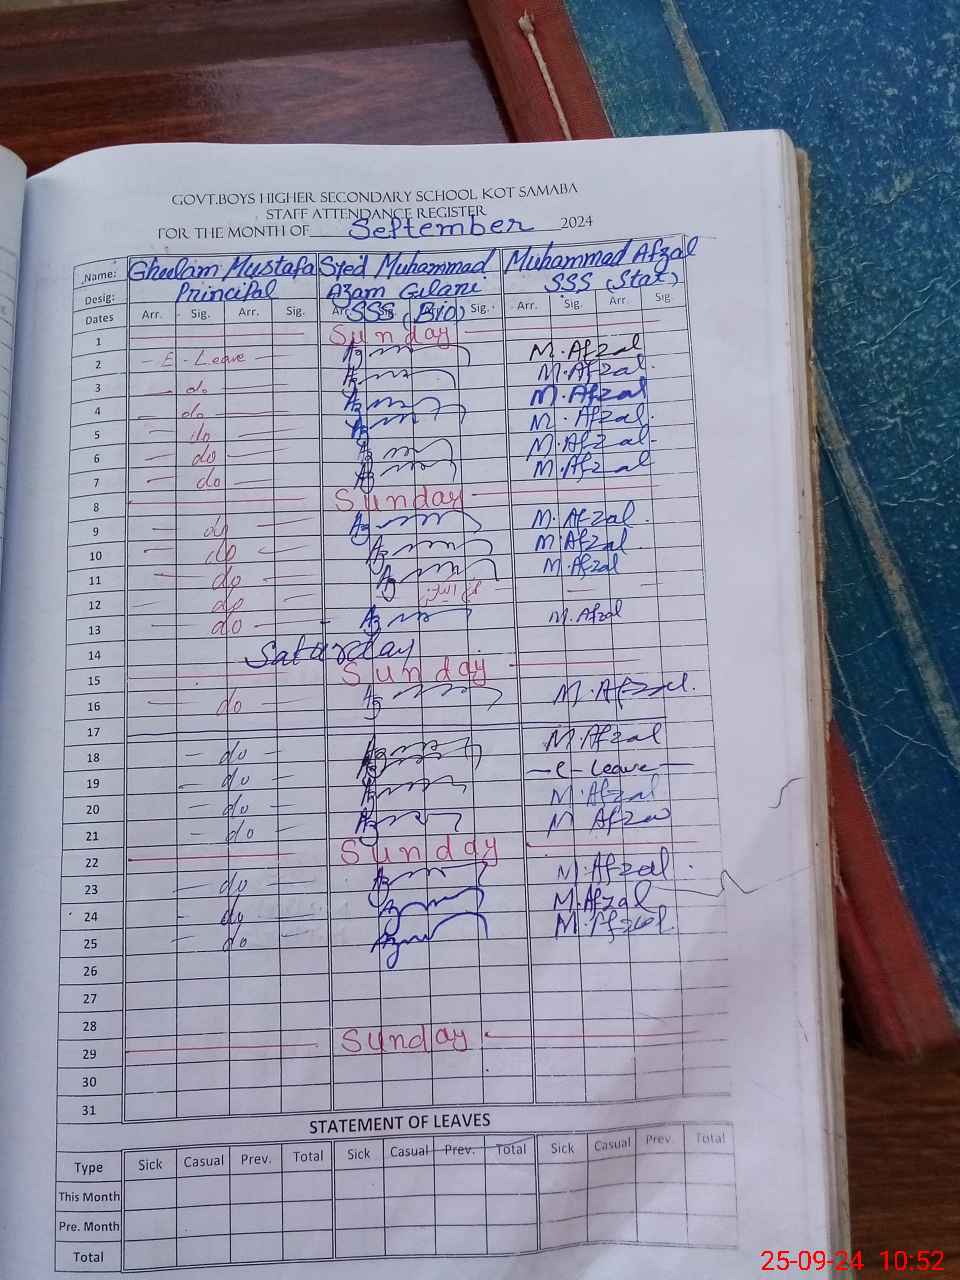 GOVT.BOYS HIGHER SECONDARY SCHOOL KOT SAMABA
STAFF ATTENDANCE REGISTER
FOR THE MONTH OF September 2024
Name: Ghulam Mustafa Syed Muhammad Muhammad Afzal
Desig: Principal Azam Gilani SSS (Stat)
SSS (Bio)
Dates Arr. Sig. Arr. Sig. Arr. Sig. Sig. Arr. Sig. Arr. Sig.
1 Sunday
2 E - Leave M. Afzal
3 do M. Afzal
4 do M. Afzal
5 do M. Afzal
6 do M. Afzal
7 do M. Afzal
8 Sunday
9 do M. Afzal
10 do M. Afzal
11 do M. Afzal
12 do
13 do M. Afzal
14 Saturday
15 Sunday
16 do M. Afzal
17
18 do M. Afzal
19 do e - Leave
20 do M. Afzal
21 do M Afzal
22 Sunday
23 do M. Afzal
24 do M. Afzal
25 do M. Afzal
26
27
28
29 Sunday
30
31
STATEMENT OF LEAVES
Type Sick Casual Prev. Total Sick Casual Prev. Total Sick Casual Prev. Total
This Month
Pre. Month
Total
25-09-24 10:52